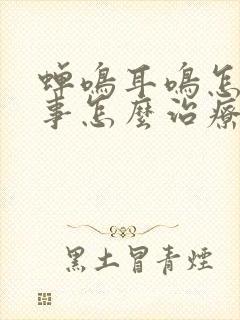 蟬鳴耳鳴怎
事怎麼治療
黑土冒青煙